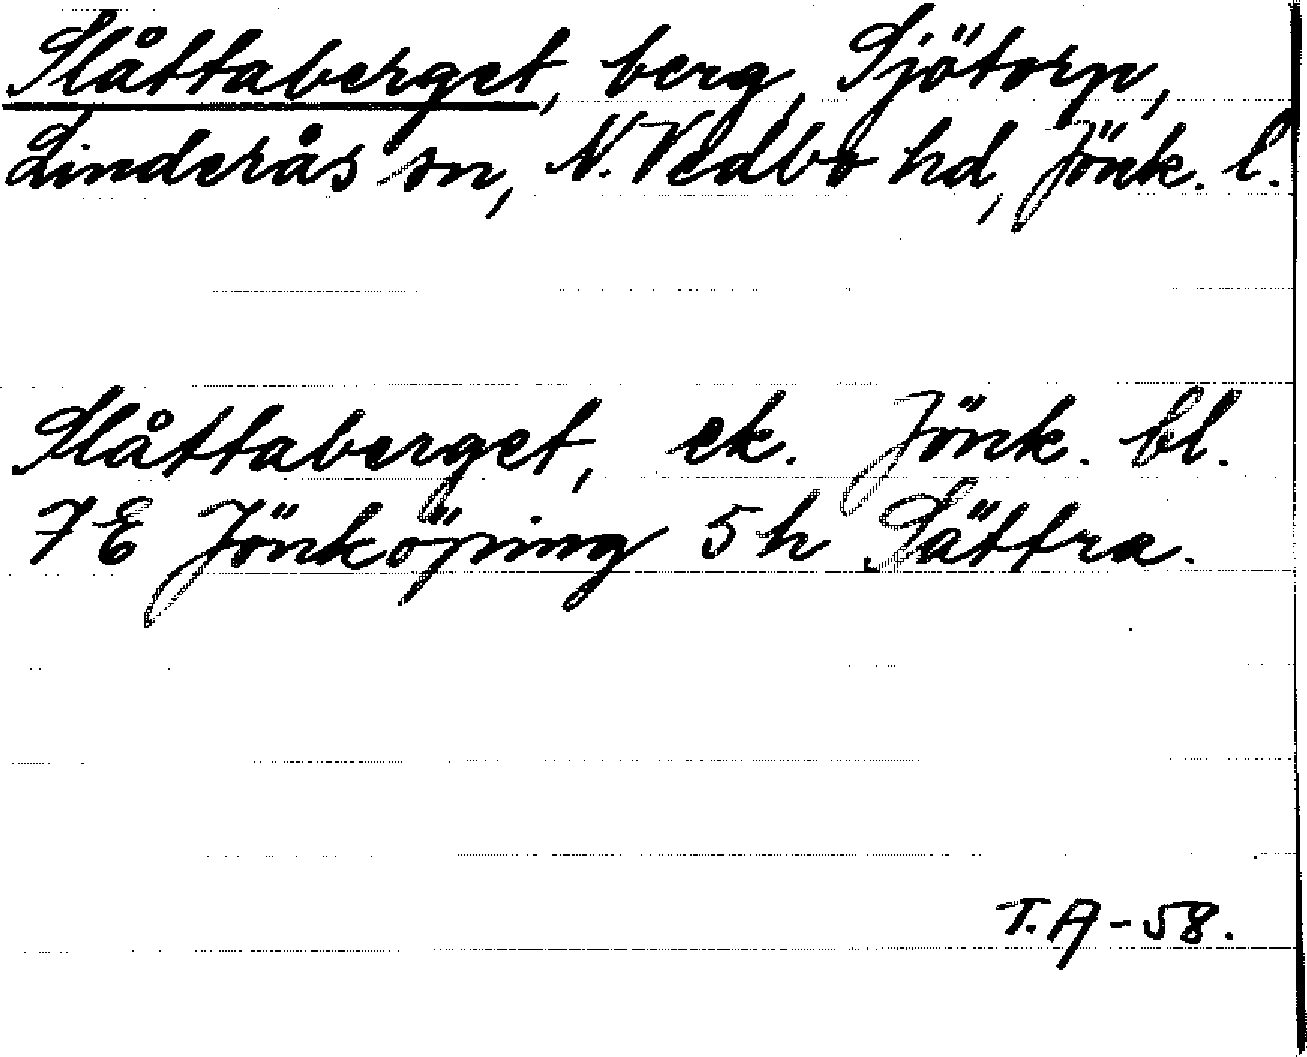 Slåttaberget, berg, Sjötorp,
Linderås sn, N. Vedbo hd, Jönk. l.
Slåttaberget, ek. Jönk. bl.
7E Jönköping 5h Sättra.
T.A-58.